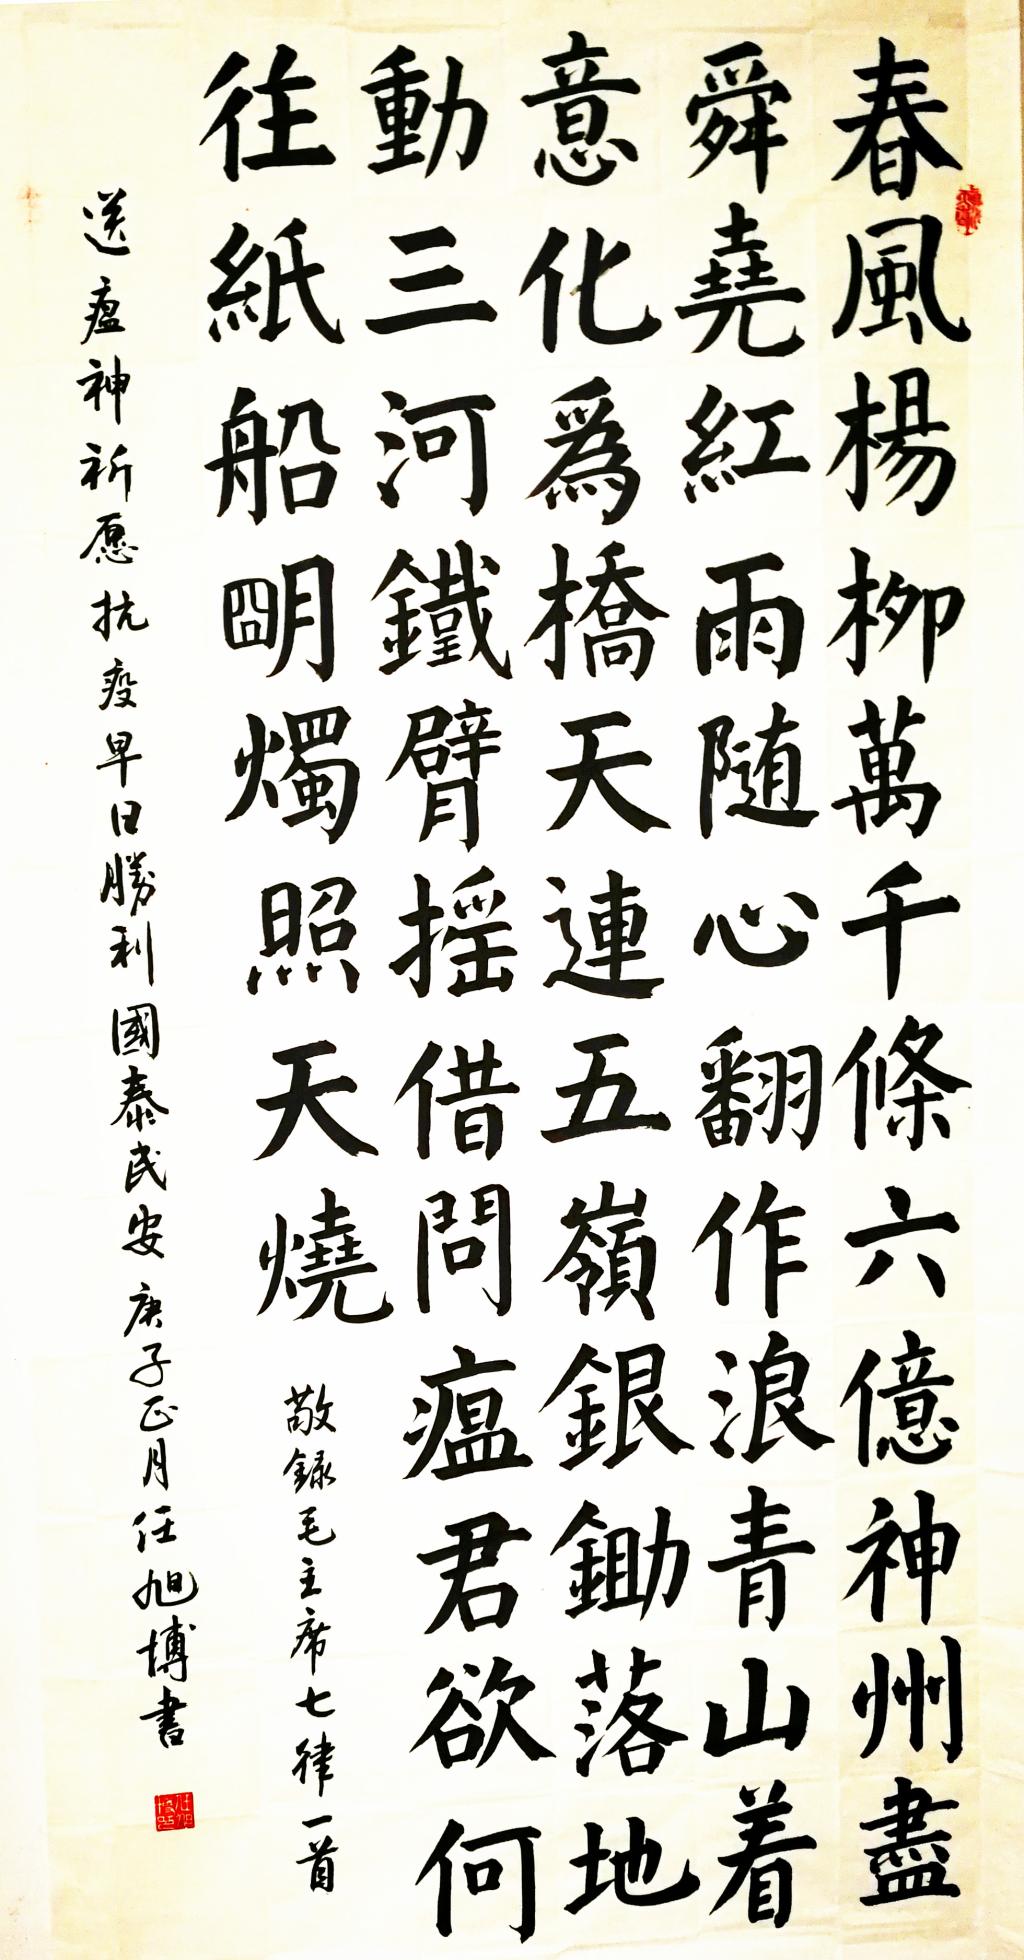 春風楊柳萬千條六億神州盡
舜堯紅雨随心翻作浪青山着
意化爲橋天連五嶺銀鋤落地
動三河鐵臂摇借問瘟君欲何
往紙船明燭照天燒
敬録毛主席七律一首
送瘟神祈愿抗疫早日勝利國泰民安庚子正月任旭博書